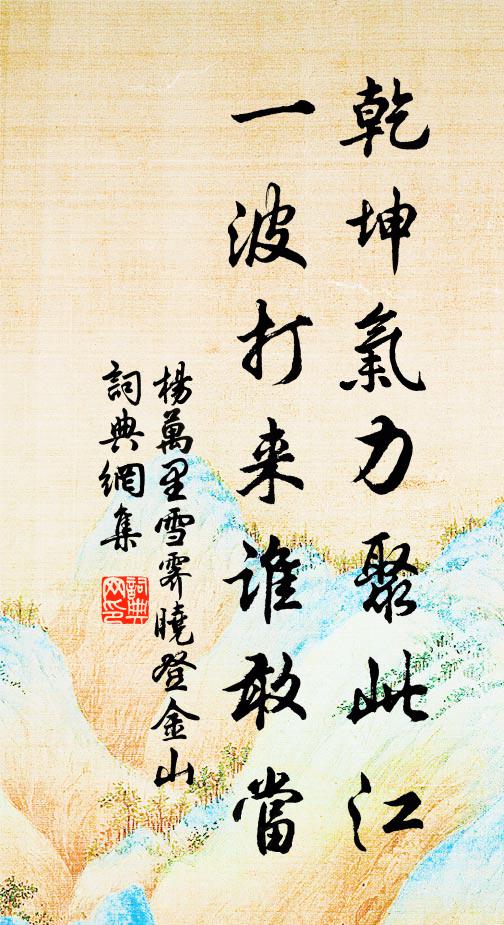 乾坤氣力聚此江
一波打来誰敢當
楊萬里雪霽曉登金山
詞典網集
詞典網印